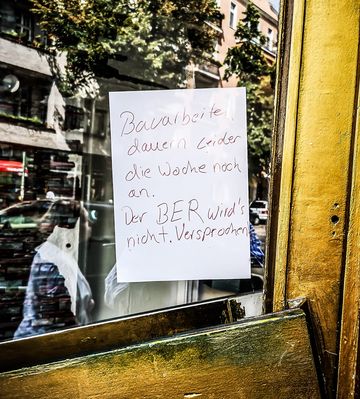 Bauarbeiten
dauern leider
die Woche noch
an.
Der BER wird's
nicht. Versprochen